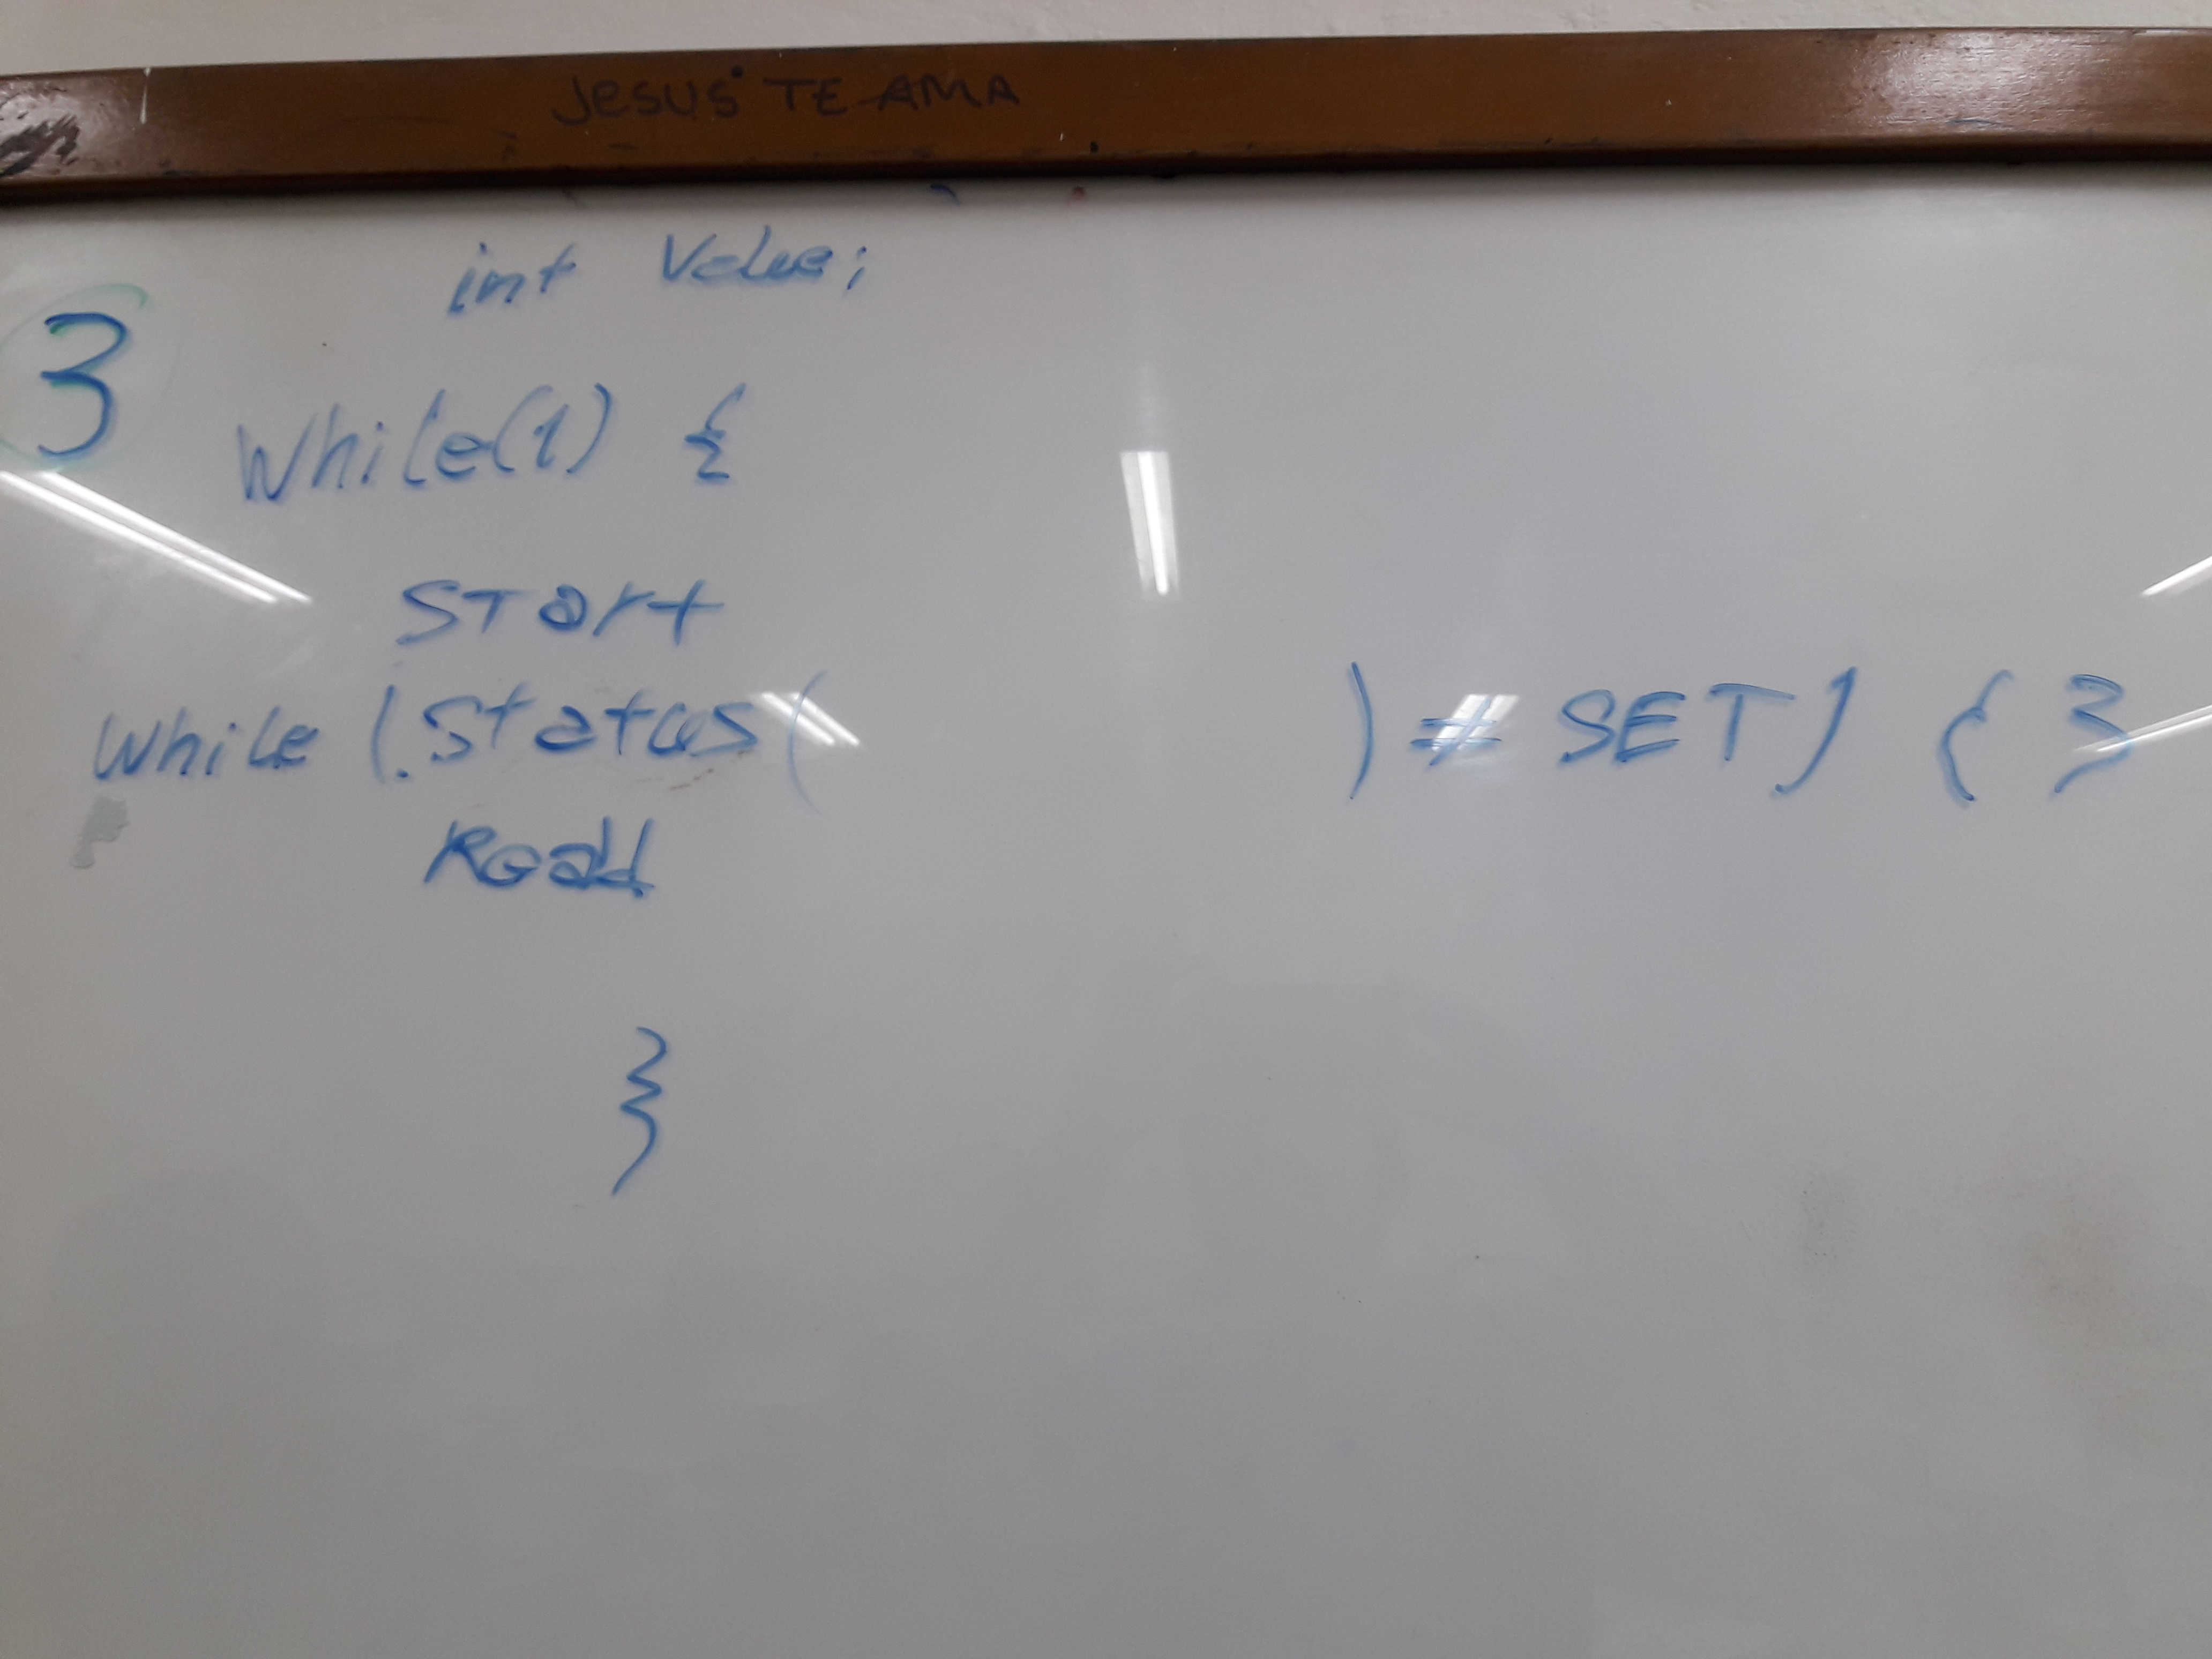 JESUS TE AMA
int Value;
3
While(1) {
Start
While (.Status( ) ≠ SET) { }
Read
}